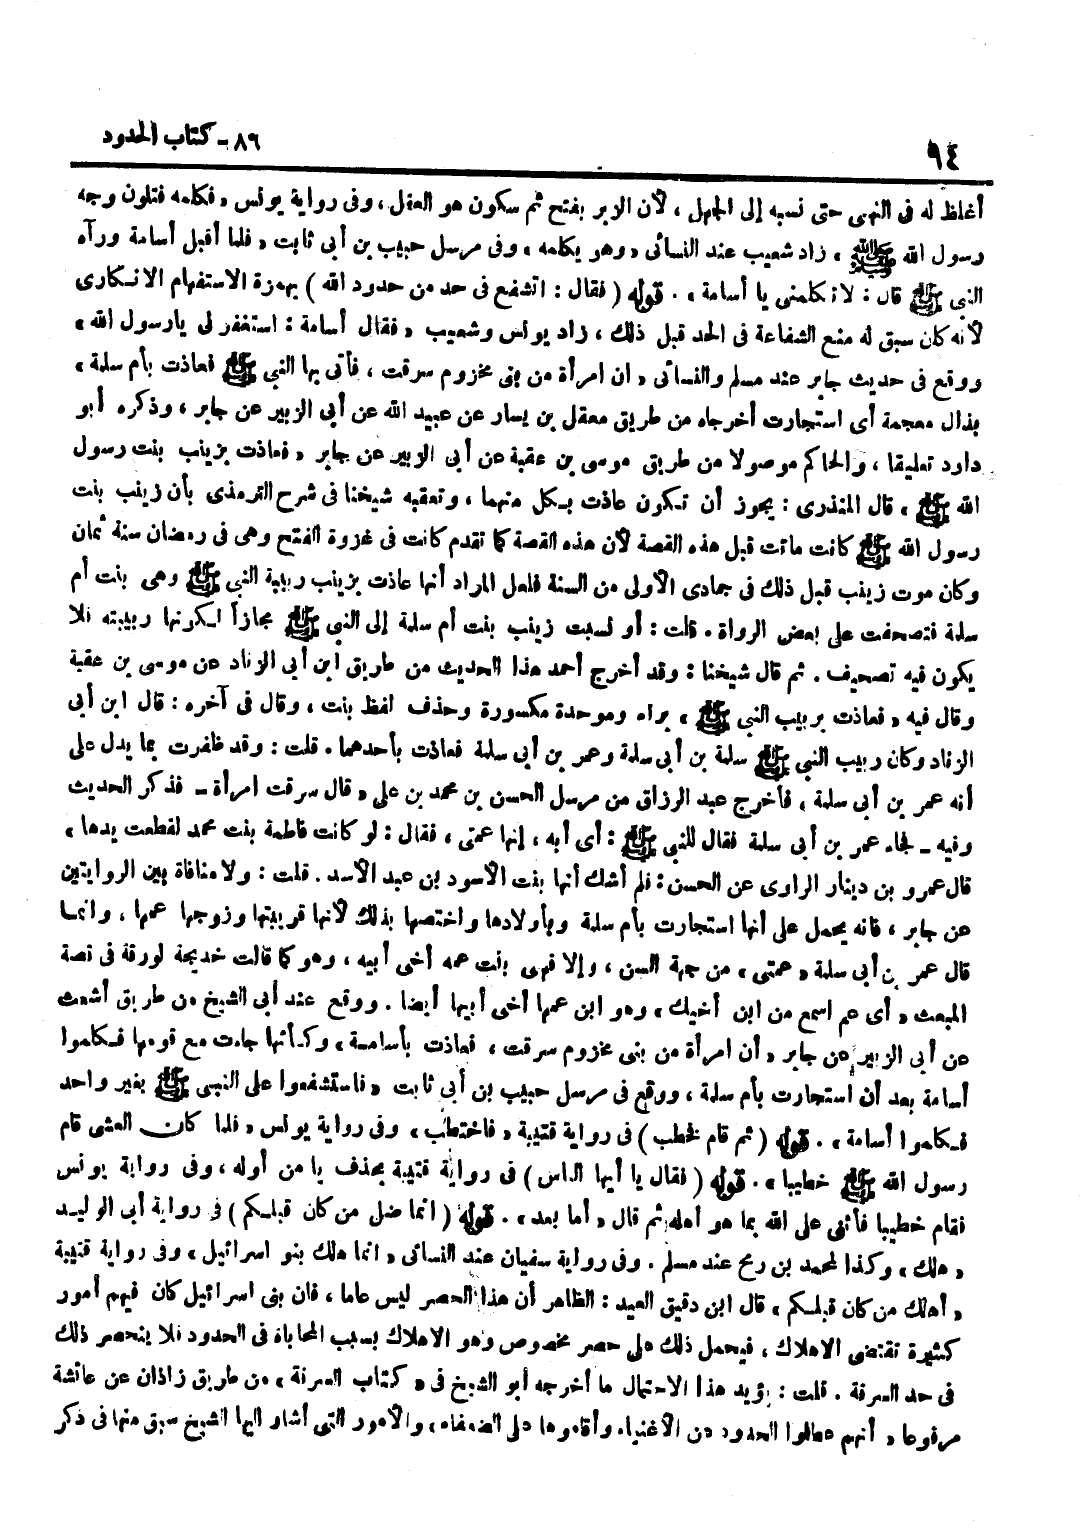 ٨٦ - كتاب الحدود
٩٤
أغلظ له فى النهى حتى نسبه إلى الجهل ، لأن الوبر بفتح ثم سكون هو العقل ، وفى رواية يونس « فكلمه فتلون وجه
رسول الله ﷺ ، زاد شعيب عند النسائى « وهو يكلمه ، وفى مرسل حبيب بن أبى ثابت « فلما أقبل أسامة ورآه
النبى ﷺ قال : لا تكلمنى يا أسامة » . قوله ( فقال : اتشفع فى حد من حدود الله ) بهمزة الاستفهام الانكارى
لأنه كان سبق له منع الشفاعة فى الحد قبل ذلك ، زاد يونس وشعيب « فقال أسامة : استغفر لى يا رسول الله »
ووقع فى حديث جابر عند مسلم والنسائى « ان امرأة من بنى مخزوم سرقت ، فأتى بها النبى ﷺ فعاذت بأم سلمة »
بذال معجمة أى استجارت أخرجاه من طريق معقل بن يسار عن عبيد الله عن أبى الزبير عن جابر ، وذكره أبو
داود تعليقا ، والحاكم موصولا من طريق موسى بن عقبة عن أبى الزبير عن جابر « فعاذت بزينب بنت رسول
الله ﷺ ، قال المنذرى : يجوز أن تكون عاذت بكل منهما ، وتعقبه شيخنا فى شرح الترمذى بأن زينب بنت
رسول الله ﷺ كانت ماتت قبل هذه القصة لأن هذه القصة كما تقدم كانت فى غزوة الفتح وهى فى رمضان سنة ثمان
وكان موت زينب قبل ذلك فى جمادى الأولى من السنة فلعل المراد أنها عاذت بزينب ربيبة النبى ﷺ وهى بنت أم
سلمة فتصحفت على بعض الرواة . قلت : أو نسبت زينب بنت أم سلمة إلى النبى ﷺ مجازاً لكونها ربيبته فلا
يكون فيه تصحيف . ثم قال شيخنا : وقد أخرج أحمد هذا الحديث من طريق ابن أبى الزناد عن موسى بن عقبة
وقال فيه « فعاذت بربيب النبى ﷺ » براء وموحدة مكسورة وحذف لفظ بنت ، وقال فى آخره : قال ابن أبى
الزناد وكان ربيب النبى ﷺ سلمة بن أبى سلمة وعمر بن أبى سلمة فعاذت بأحدهما . قلت : وقد ظفرت بما يدل على
أنه عمر بن أبى سلمة ، فأخرج عبد الرزاق من مرسل الحسن بن محمد بن على « قال سرقت امرأة - فذكر الحديث
وفيه - فجاء عمر بن أبى سلمة فقال للنبى ﷺ : أى أبه ، إنها عمتى ، فقال : لو كانت فاطمة بنت محمد لقطعت يدها »
قال عمرو بن دينار الراوى عن الحسن : فلم أشك أنها بنت الأسود بن عبد الأسد . قلت : ولا منافاة بين الروايتين
عن جابر ، فانه يحمل على أنها استجارت بأم سلمة وبأولادها واختصها بذلك لأنها قريبتها وزوجها عمها ، وانما
قال عمر بن أبى سلمة « عمتى » من جهة السن ، وإلا فهى بنت عمه أخى أبيه ، وهو كما قالت خديجة لورقة فى قصة
المبعث « أى عم اسمع من ابن أخيك » وهو ابن عمها أخى أبيها أيضا . ووقع عند أبى الشيخ من طريق أشعث
عن أبى الزبير عن جابر « أن امرأة من بنى مخزوم سرقت ، فعاذت بأسامة » وكأنها جاءت مع قومها فكلموا
أسامة بعد أن استجارت بأم سلمة ، ووقع فى مرسل حبيب بن أبى ثابت « فاستشفعوا على النبى ﷺ بغير واحد
فكلموا أسامة » . قوله ( ثم قام فخطب ) فى رواية قتيبة « فاختطب » وفى رواية يونس « فلما كان العشى قام
رسول الله ﷺ خطيبا » . قوله ( فقال يا أيها الناس ) فى رواية قتيبة بحذف يا من أوله ، وفى رواية يونس
فقام خطيبا فأثنى على الله بما هو أهله ثم قال « أما بعد » . قوله ( انما ضل من كان قبلكم ) فى رواية أبى الوليد
« هلك » وكذا لمحمد بن رمح عند مسلم . وفى رواية سفيان عند النسائى « انما هلك بنو اسرائيل » وفى رواية قتيبة
« أهلك من كان قبلكم » قال ابن دقيق العيد : الظاهر أن هذا الحصر ليس عاما ، فان بنى اسرائيل كان فيهم أمور
كثيرة تقتضى الاهلاك ، فيحمل ذلك على حصر مخصوص وهو الاهلاك بسبب المحاباة فى الحدود فلا ينحصر ذلك
فى حد السرقة . قلت : يؤيد هذا الاحتمال ما أخرجه أبو الشيخ فى « كتاب السرقة » من طريق زاذان عن عائشة
مرفوعا « أنهم عطلوا الحدود عن الأغنياء وأقاموها على الضعفاء » والأمور التى أشار اليها الشيخ سبق منها فى ذكر